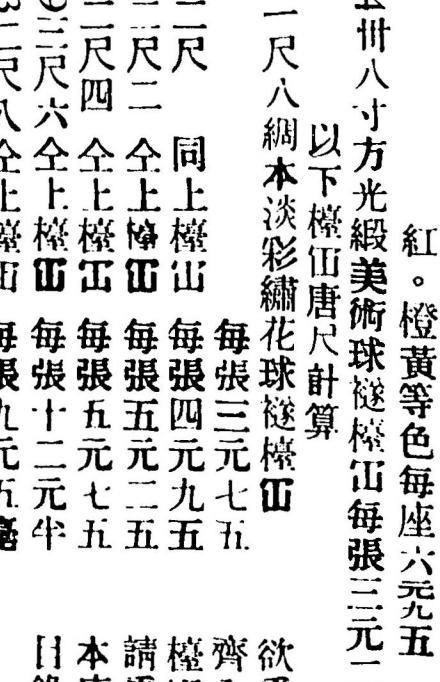 紅。橙黃等色每座六元九五
卅八寸方光緞美術球䙇檯冚每張三元
以下檯冚唐尺計算
一尺八綢本淡彩繡花球䙇檯冚
每張三元七五
二尺 同上檯冚 每張四元九五
二尺二 仝上檯冚 每張五元二五
二尺四 仝上檯冚 每張五元七五
三尺六 仝上檯冚 每張十二元半
尺八仝上檯冚 每張九元五毫
欲
齊
檯
請
本
目錄